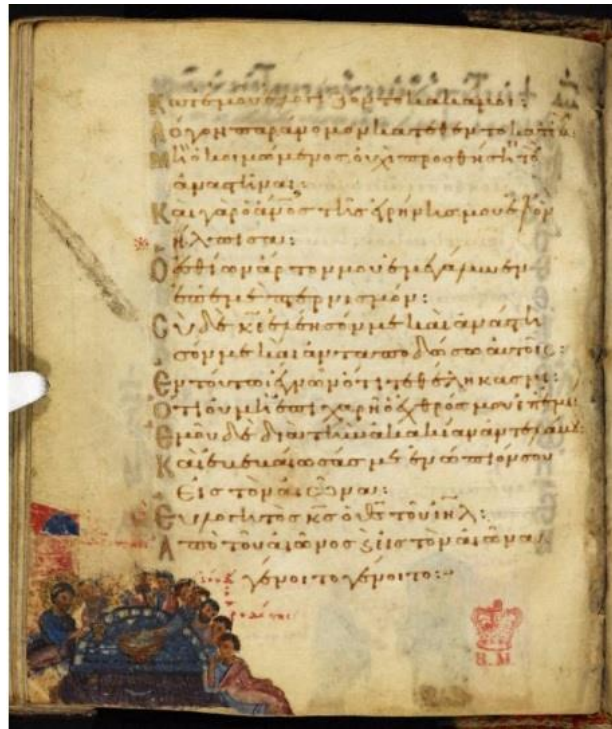 Κατ ἐμοῦ ἐλογίζοντο κακά μοι:
Λόγον παράνομον κατέθεντο κατ ἐμ
Μὴ ὁ κοιμώμενος οὐχὶ προσθήσει τοῦ
ἀναστῆναι:
Καὶ γὰρ ὁ ἄνος τῆς εἰρήνης μου ἐφ ὃν
ἤλπισα:
Ὁ ἐσθίων ἄρτον μου ἐμεγάλυνεν
ἐπ ἐμὲ πτερνισμόν:
Σὺ δὲ κε ἐλέησόν με καὶ ἀνάστη
σόν με καὶ ἀνταποδώσω αὐτοῖς:
Ἐν τούτωι ἔγνων ὅτι τεθέληκας με:
Ὅτι οὐ μὴ ἐπιχαρῆ ὁ ἐχθρός μου ἐπ ἐμέ:
Ἐμοῦ δὲ διὰ τὴν ἀκακίαν ἀντελάβου:
Καὶ ἐβεβαίωσάς με ἐνώπιόν σου
εἰς τὸν αἰῶνα:
Εὐλογητὸς κς ὁ θς τοῦ ιηλ:
Ἀπὸ τοῦ αἰῶνος ϗ εἰς τὸν αἰῶνα
γένοιτο γένοιτο:
B.M